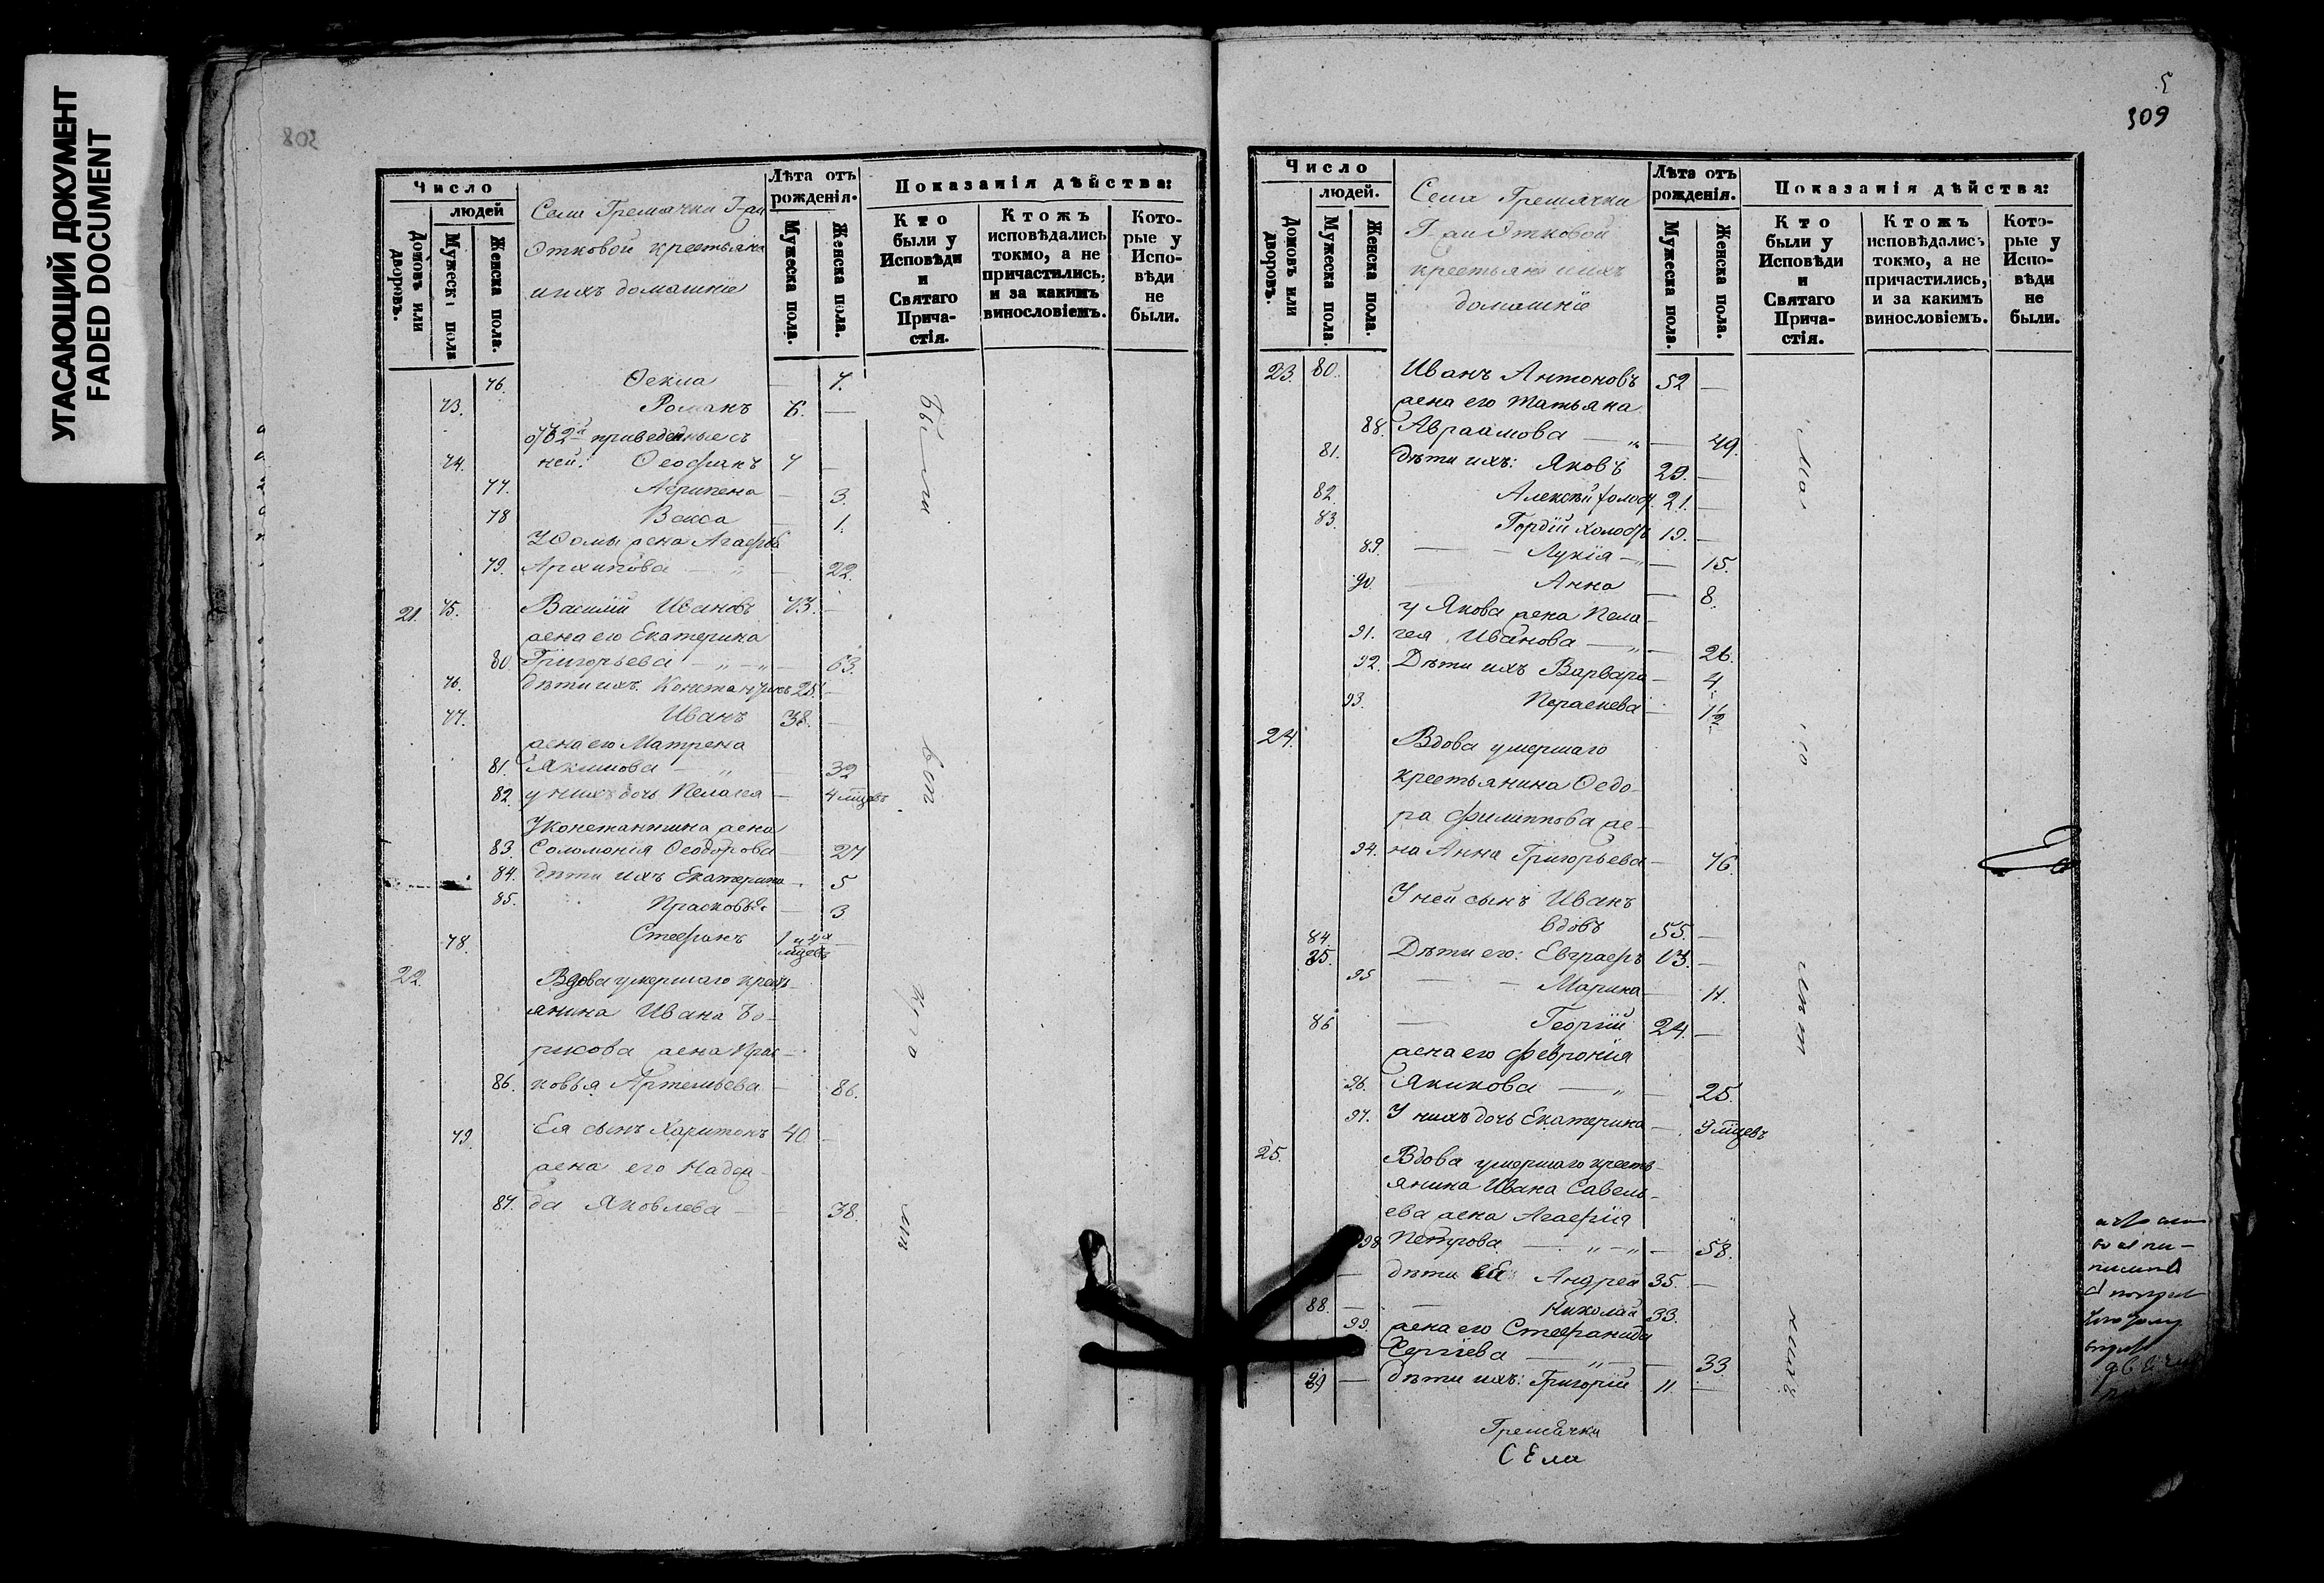 УТАСАЮЩИЙ ДОКУМЕНТ
FADED DOCUMENT
308
Число
людей
Домовъ или дворовъ.
Мужеска пола
Женска пола.
Села Гремячки Г-жи
Этковой крестьяне
и ихъ домашніе
Лѣта отъ рожденія.
Мужеска пола.
Женска пола.
Показанія дѣйства:
Кто были у Исповѣди и Святаго Причастія.
Ктожъ исповѣдались токмо, а не причастились, и за какимъ винословіемъ.
Которые у Исповѣди не были.
76. Ѳекла — 7.
73. Романъ 6. —
приведенные съ
74. ней: Ѳеофанъ 7 —
77. Агрипена — 3.
78 Васса — 1.
У Ѳомы жена Агафья
79. Архипова — „ — 22.
21. 75. Василій Ивановъ 73. —
жена его Екатерина
80. Григорьева — „ — „ — 63.
76. дѣти ихъ: Константинъ 28. —
77. Иванъ 38. —
жена его Матрена
81. Якимова — „ — 32
82. у нихъ дочь Пелагея — 4 мцевъ
У Константина жена
83. Соломонія Ѳеодорова — 27
84. дѣти ихъ Екатерина — 5
85. Прасковья — 3
78. Стефанъ
22. Вдова умершаго кресть-
янина Ивана Бо-
рисова жена Прас-
86. ковья Артемьева — 86.
79. Ея сынъ Харитонъ 40 —
жена его Надеж-
87. да Яковлева — — 38.
Были
309
Число
людей.
Домовъ или дворовъ.
Мужеска пола.
Женска пола.
Села Гремячки
Г-жи Этковой
крестьяне и ихъ
домашніе
Лѣта отъ рожденія.
Мужеска пола.
Женска пола.
Показанія дѣйства:
Кто были у Исповѣди и Святаго Причастія.
Ктожъ исповѣдались токмо, а не причастились, и за какимъ винословіемъ.
Которые у Исповѣди не были.
23. 80. Иванъ Антоновъ 52 —
жена его Татьяна
88. Авраамова — „ — 49.
81. дѣти ихъ: Яковъ 29. —
82. Алексѣй холост. 21. —
83. Гордій холост. 19. —
89. — — Лукія — „ — 15.
90. — Анна — 8.
у Якова жена Пела-
91. гея Иванова — „ — 26.
92. Дѣти ихъ Варвара — 4
93. Параскева — 1½
24. Вдова умершаго
крестьянина Ѳедо-
ра Филиппова же-
94. на Анна Григорьева — 76.
У ней сынъ Иванъ
84. вдовъ 55. —
85. Дѣти его: Евграфъ 13. —
95 — — Марина — 14.
86 — Георгій 24. —
жена его Февронія
96. Якимова — „ — 25.
97. У нихъ дочь Екатерина — 9 мцевъ
25. Вдова умершаго кресть-
янина Ивана Савель-
ева жена Агафія
98 Петрова — „ — „ — 58.
— дѣти ея: Андрей 35. —
88. — — Николай 33.
99. жена его Стефанида
Сергіева — „ — 33.
89 — дѣти ихъ: Григорій 11 —
Гремячки
Села